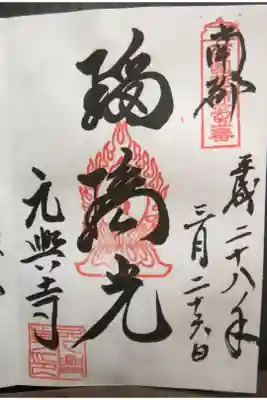 南都
平成二十八年
三月二十六日
瑠璃光
元興寺